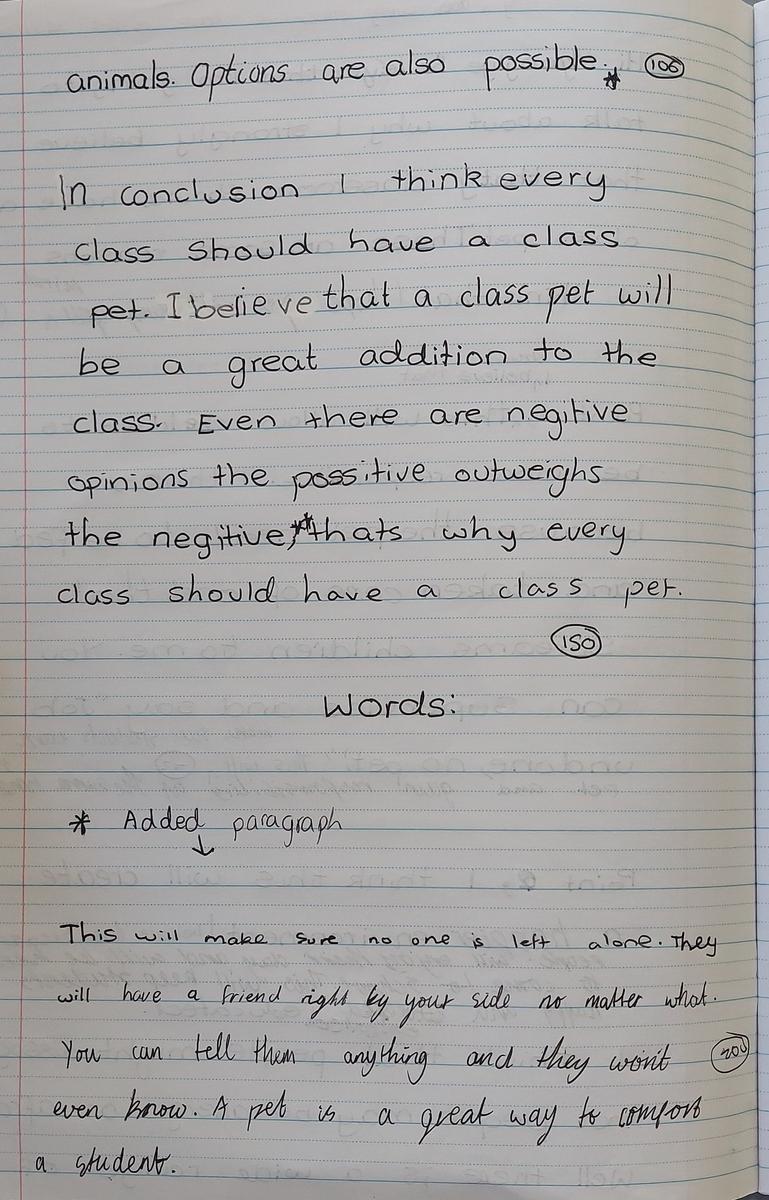 animals. Options are also possible.* 106
In conclusion I think every
class should have a class
pet. I believe that a class pet will
be a great addition to the
class. Even there are negitive
opinions the possitive outweighs
the negitive,** thats why every
class should have a class pet.
150
Words:
* Added paragraph
↓
This will make sure no one is left alone. They
will have a friend right by your side no matter what.
You can tell them anything and they won't 200
even know. A pet is a great way to comfort
a student.